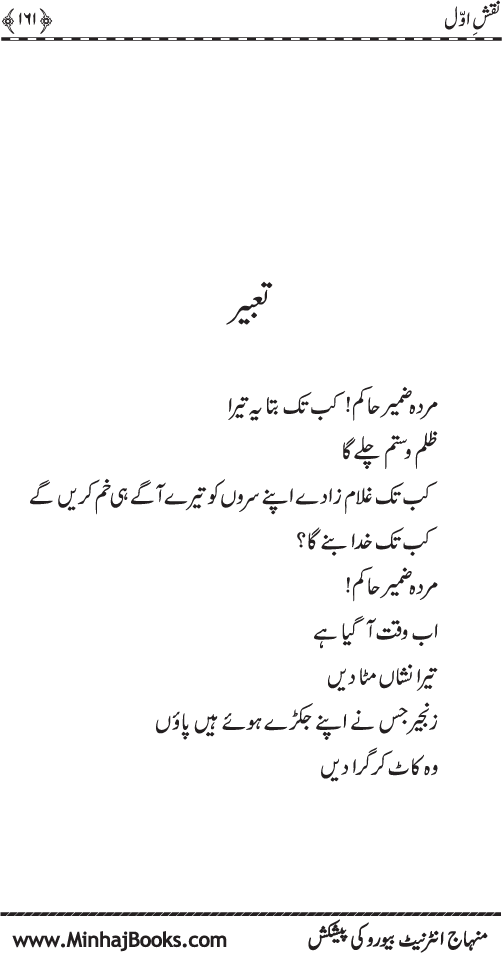 نقشِ اوّل ﴿۱۶۱﴾
تعبیر
مردہ ضمیر حاکم! کب تک بتا یہ تیرا
ظلم و ستم چلے گا
کب تک غلام زادے اپنے سروں کو تیرے آگے ہی خم کریں گے
کب تک خدا بنے گا؟
مردہ ضمیر حاکم!
اب وقت آ گیا ہے
تیرا نشاں مٹا دیں
زنجیر جس نے اپنے جکڑے ہوئے ہیں پاؤں
وہ کاٹ کر گرا دیں
منہاج انٹرنیٹ بیورو کی پیشکش www.MinhajBooks.com